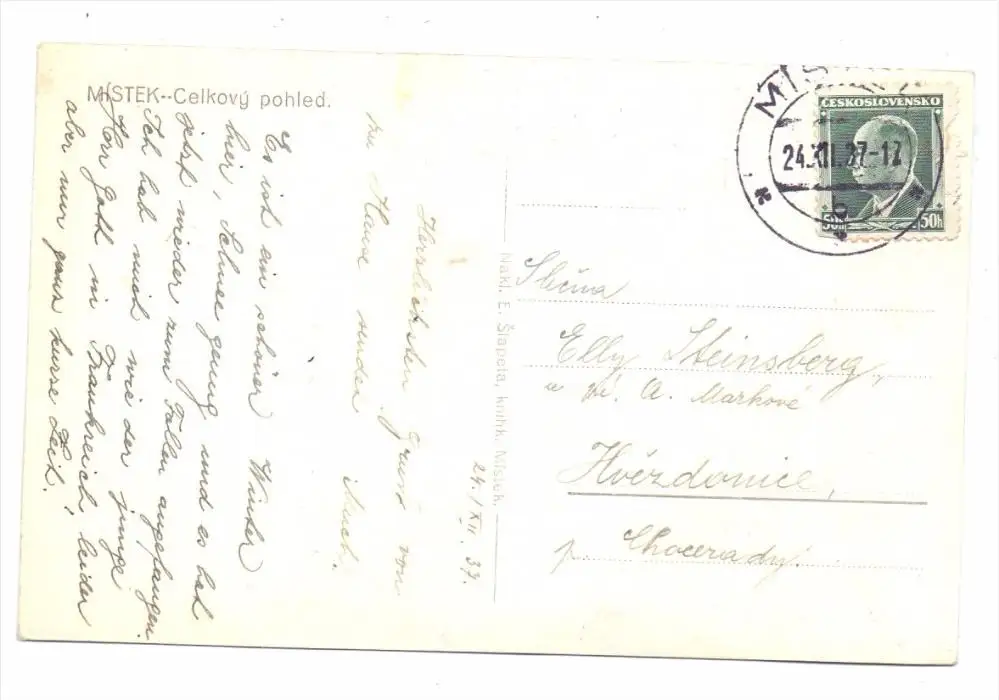 MÍSTEK--Celkový pohled.
24./XII. 37.
Herzlichsten Gruss von
Hause senden
Es ist ein schöner Winter
hier, Schnee genug und es hat
jetzt wieder zum Fallen angefangen.
Ich hab mich wie der junge
Herr in Frankreich leider
aber nur ganz kurze Zeit!
Nakl. E. Šlapeta, knihk. Místek.
ČESKOSLOVENSKO
50h 50h
MÍS
24.XII.37-17
Slečna
Elly Steinsberg,
u pí. A. Markové
Hvězdonice,
p. Chocerady.